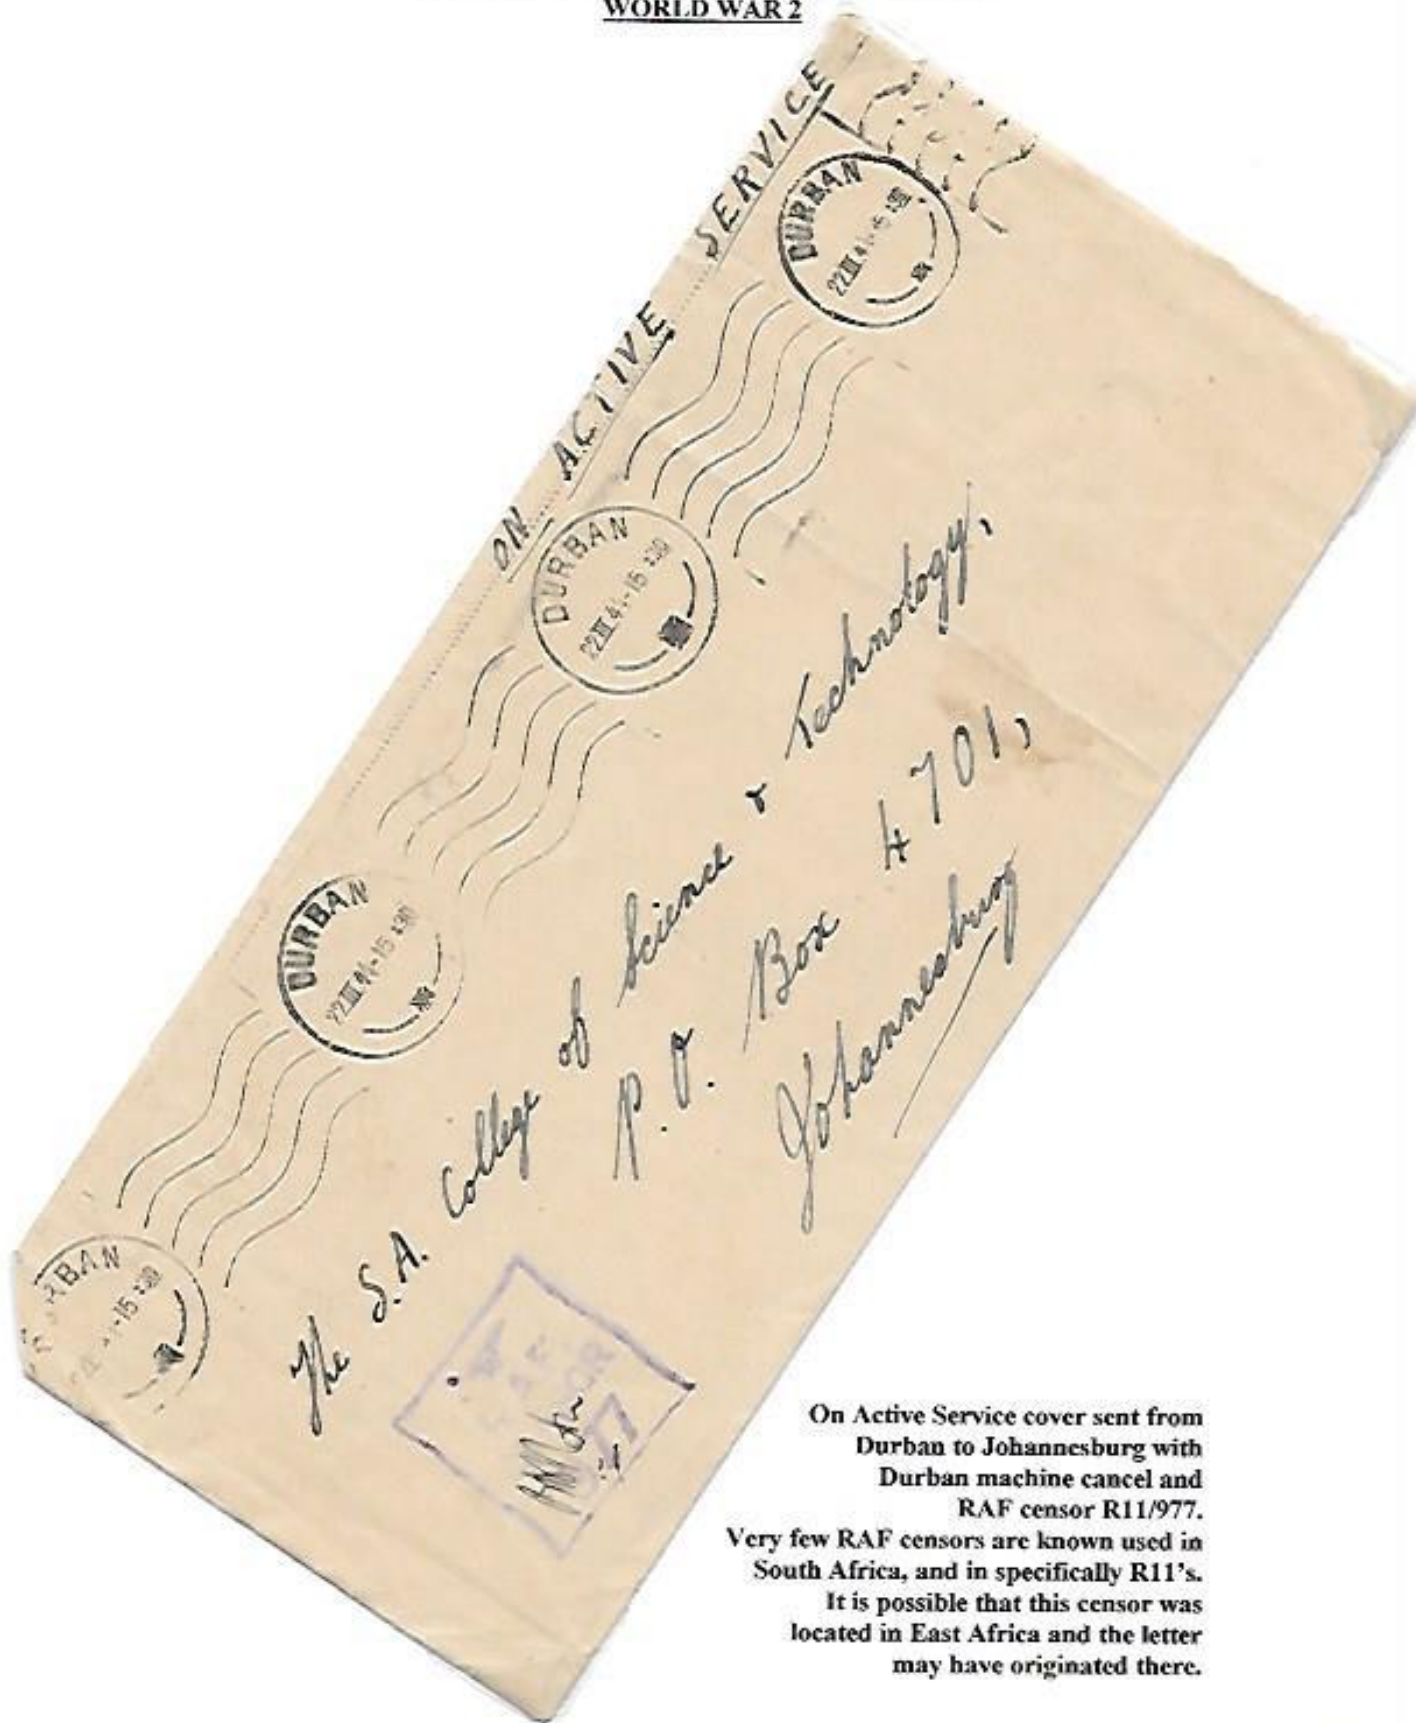 WORLD WAR 2
ON ACTIVE SERVICE
DURBAN
DURBAN
DURBAN
The S.A. College of Science & Technology,
P.O. Box 4701,
Johannesburg
On Active Service cover sent from
Durban to Johannesburg with
Durban machine cancel and
RAF censor R11/977.
Very few RAF censors are known used in
South Africa, and in specifically R11's.
It is possible that this censor was
located in East Africa and the letter
may have originated there.